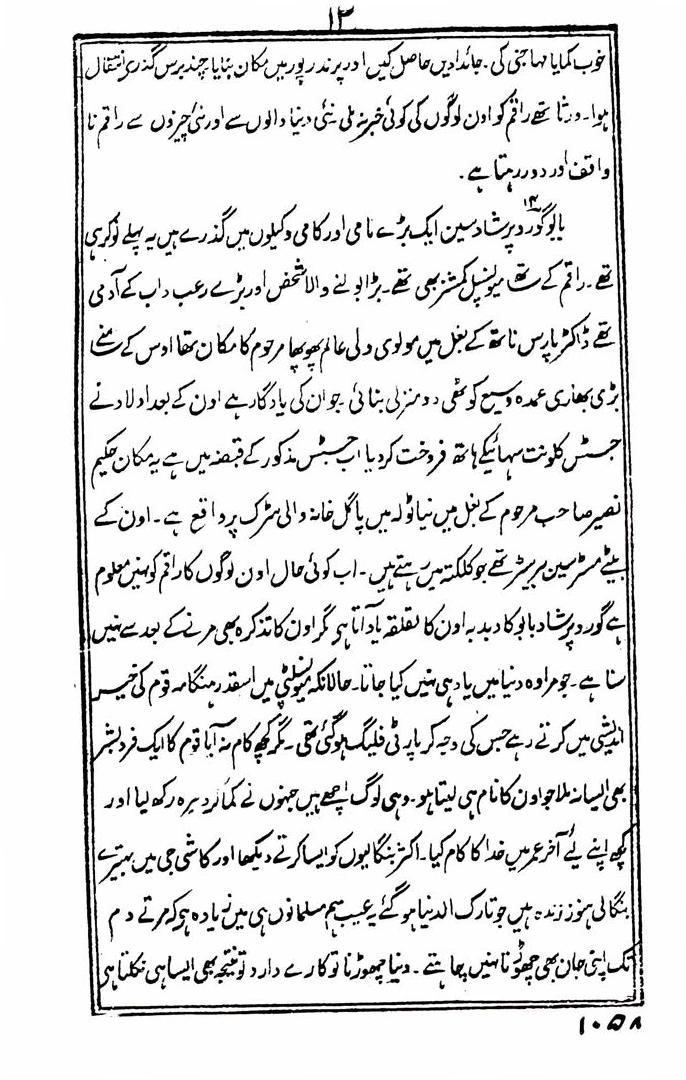 ۱۳
خوب کمایا مہاجنی کی۔ جائدادیں حاصل کیں اور پرندر پور میں مکان بنایا چند برس گذری انتقال
ہوا۔ ورثا تھے راقم کو اون لوگوں کی کوئی خبر نہ ملی نئی دنیا والوں سے اور نئی چیزوں سے راقم نا
واقف اور دور رہتا ہے۔
۱۴
بابو گورو پرشاد سین ایک بڑے نامی اور کامی وکیلوں میں گذرے ہیں یہ پہلے نوکر ہی
تھے۔ راقم کے ساتھ میونسپل کمشنر بھی تھے۔ بڑا بولنے والا شخص اور بڑے رعب داب کے آدمی
تھے ڈاکٹر پارس ناتھ کے بغل میں مولوی ولی عالم پھوپھا مرحوم کا مکان تھا اوس کے سامنے
بڑی بھاری عمدہ وسیع کوٹھی دو منزلی بنائی جو ان کی یادگار ہے اون کے بعد اولاد نے
جسٹس کلونت سہائیکے ہاتھ فروخت کردیا اب جسٹس مذکور کے قبضہ میں ہے یہ مکان حکیم
نصیر صاحب مرحوم کے بغل میں نیا ٹولہ میں پاگل خانہ والی سڑک پر واقع ہے۔ اون کے
بیٹے مسٹر سین بریسٹر تھے جو کلکتہ میں رہتے ہیں۔ اب کوئی حال اون لوگوں کا راقم کو نہیں معلوم
ہے گورو پرشاد بابو کا دبدبہ اون کا تعلقہ یاد آتا ہی مگر اون کا تذکرہ بھی مرنے کے بعد سے نہیں
سنا ہے۔ جو مرا وہ دنیا میں یاد ہی نہیں کیا جاتا۔ حالانکہ میونسپلٹی میں اسقدر ہنگامہ قوم کی خیر
اندیشی میں کرتے رہے جس کی وجہ کر پارٹی فلینگ ہو گئی تھی۔ مگر کچھ کام نہ آیا قوم کا ایک فرد بشر
بھی ایسا نہ ملا جو اون کا نام ہی لیتا ہو۔ وہی لوگ اچھے ہیں جنہوں نے کماکر دیرہ رکھ لیا اور
کچھ اپنے لئے آخر عمر میں خدا کا کام کیا۔ اکثر بنگالیوں کو ایسا کرتے دیکھا اور کاشی جی میں بہتیرے
بنگالی ہنوز زندہ ہیں جو تارک الدنیا ہو گئے یہ عیب ہم مسلمانوں ہی میں زیادہ ہی کہ مرتے دم
تک اپنی جان بھی چھوڑنا نہیں چاہتے۔ دنیا چھوڑنا تو کارے دارد تو نتیجہ بھی ایسا ہی نکلتا ہی
۱۰۵۸